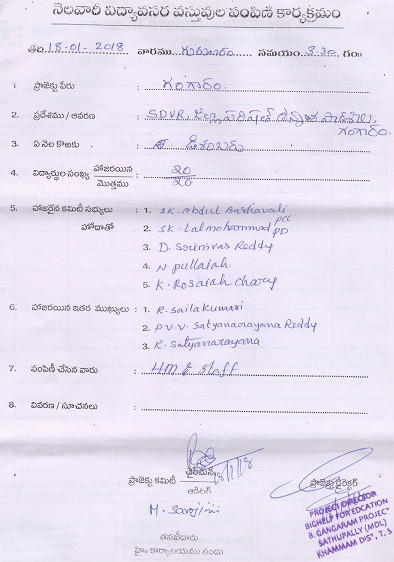 నెలవారీ విద్యావసర వస్తువుల పంపిణీ కార్యక్రమం
తేది 18-01-2018 వారము గురువారం సమయం 3.30 గం॥
1. ప్రాజెక్టు పేరు : గంగారం
2. ప్రదేశము / ఆవరణ : SDVR, జిల్లా పరిషత్ ఉన్నత పాఠశాల, గంగారం.
3. ఏ నెల కొఱకు : డిశంబరు
4. విద్యార్థుల సంఖ్య హాజరయిన : 20
మొత్తము 20
5. హాజరైన కమిటీ సభ్యులు : 1. SK. Abdul Bashavali PCC
హోదాతో 2. SK. Lalmohammad PD
3. D. Srinivas Reddy
4. N. pullaiah
5. K. Rosaiah chary
6. హాజరయిన ఇతర ముఖ్యులు : 1. R. Sailakumari
2. P.V.V. Satyanarayana Reddy
3. R. Satyanarayana
7. పంపిణీ చేసిన వారు : HM & Staff
8. వివరణ / సూచనలు :
ప్రాజెక్టు కమిటీ ఛైర్మన్ 18/1/18 ప్రాజెక్టు డైరెక్టర్
ఆడిటర్
M. Sarojini
PROJECT DIRECTOR
BIGHELP FOR EDCATION
B. GANGARAM PROJECT
SATHUPALLY (MDL)
KHAMMAM DIST, T.S
తనఖీదారు
హైం కార్యాలయము నందు